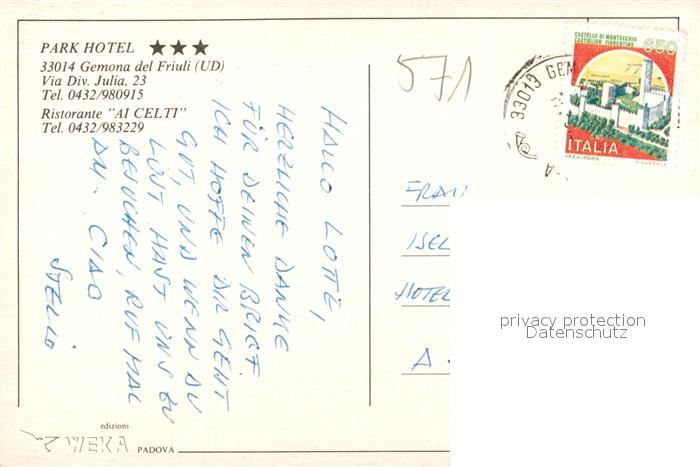 PARK HOTEL ★★★
33014 Gemona del Friuli (UD)
Via Div. Julia, 23
Tel. 0432/980915
Ristorante "AI CELTI"
Tel. 0432/983229
571
33013 GEM
CASTELLO DI MONTECCHIO
CASTIGLION FIORENTINO
650
ITALIA
I.P.Z.S.-ROMA
HALLO LOTTE,
HERZLICHE DANKE
FÜR DEINEN BRIEF
ICH HOFFE DIR GEHT
GUT, UND WENN DU
LUST HAST UNS ZU
BESUCHEN, RUF MAL
AN. CIAO
STELIO
FRAU
ISEL
HOTEL
A
privacy protection
Datenschutz
edizioni
WEKA PADOVA